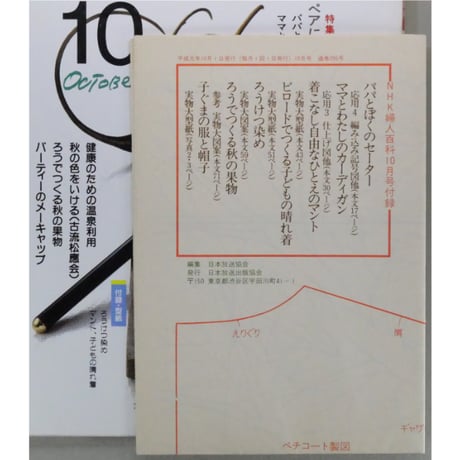 特集
ペアに
パパと
ママ
10
OCTOBER
健康のための温泉利用
秋の色をいける〈古流松應会〉
ろうでつくる秋の果物
パーティーのメーキャップ
付録・型紙
NHK婦人百科10月号付録
パパとぼくのセーター
応用4 編み込み記号図他(本文17ページ)
ママとわたしのカーディガン
応用3 仕上げ図他(本文30ページ)
着こなし自由なひとえのマント
実物大型紙(本文43ページ)
ビロードでつくる子どもの晴れ着
実物大型紙(本文51ページ)
ろうけつ染め
実物大図案(本文59ページ)
ろうでつくる秋の果物
参考 実物大図案(本文71ページ)
子ぐまの服と帽子
実物大型紙(写真2・3ページ)
編集 日本放送協会
発行 日本放送出版協会
〒150 東京都渋谷区宇田川町41-1
えりぐり
肩
ギャザ
ペチコート製図